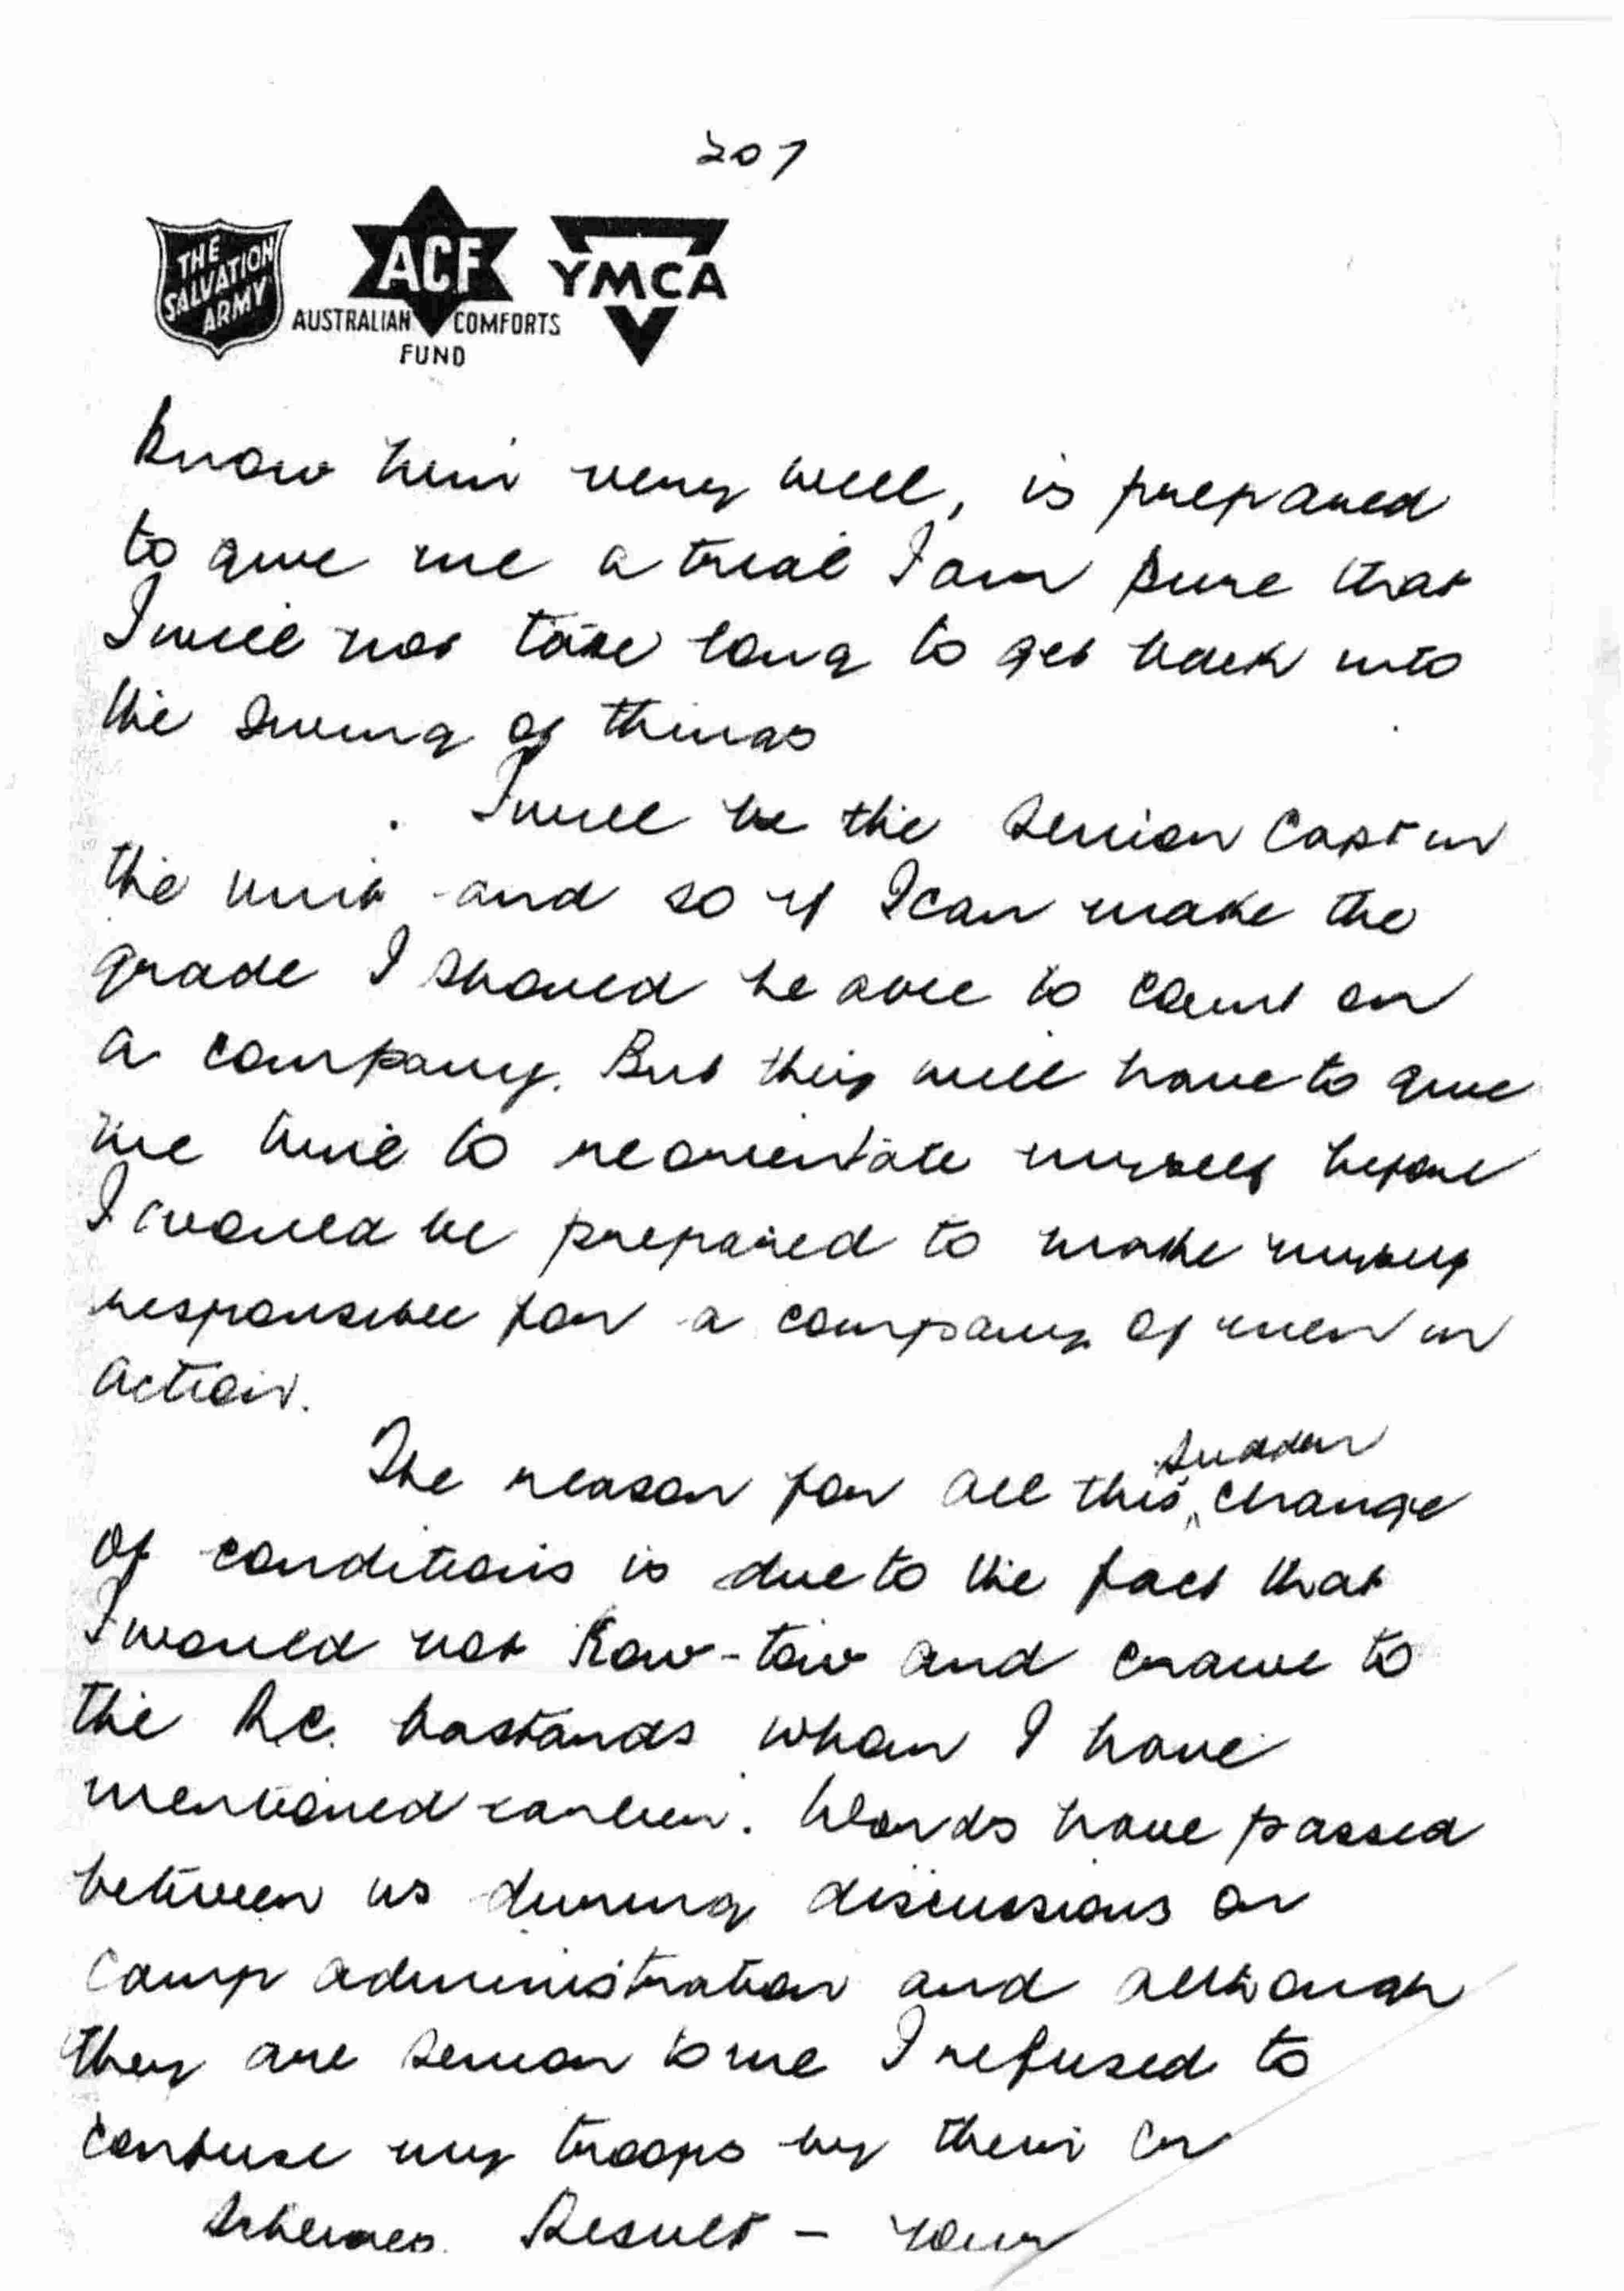 207
THE SALVATION ARMY
ACF
AUSTRALIAN COMFORTS FUND
YMCA
know him very well, is prepared
to give me a trial I am sure that
I will not take long to get back into
the swing of things
I will be the senior Capt in
the unit and so if I can make the
grade I should be able to count on
a company. But they will have to give
me time to reorientate myself before
I would be prepared to make myself
responsible for a company of men in
action.
The reason for all this sudden change
of conditions is due to the fact that
I would not Kow-tow and crawl to
the R.C. bastards whom I have
mentioned earlier. Words have passed
between us during discussions on
Camp administration and although
they are senior to me I refused to
confuse my troops by their
schemes. Result - your